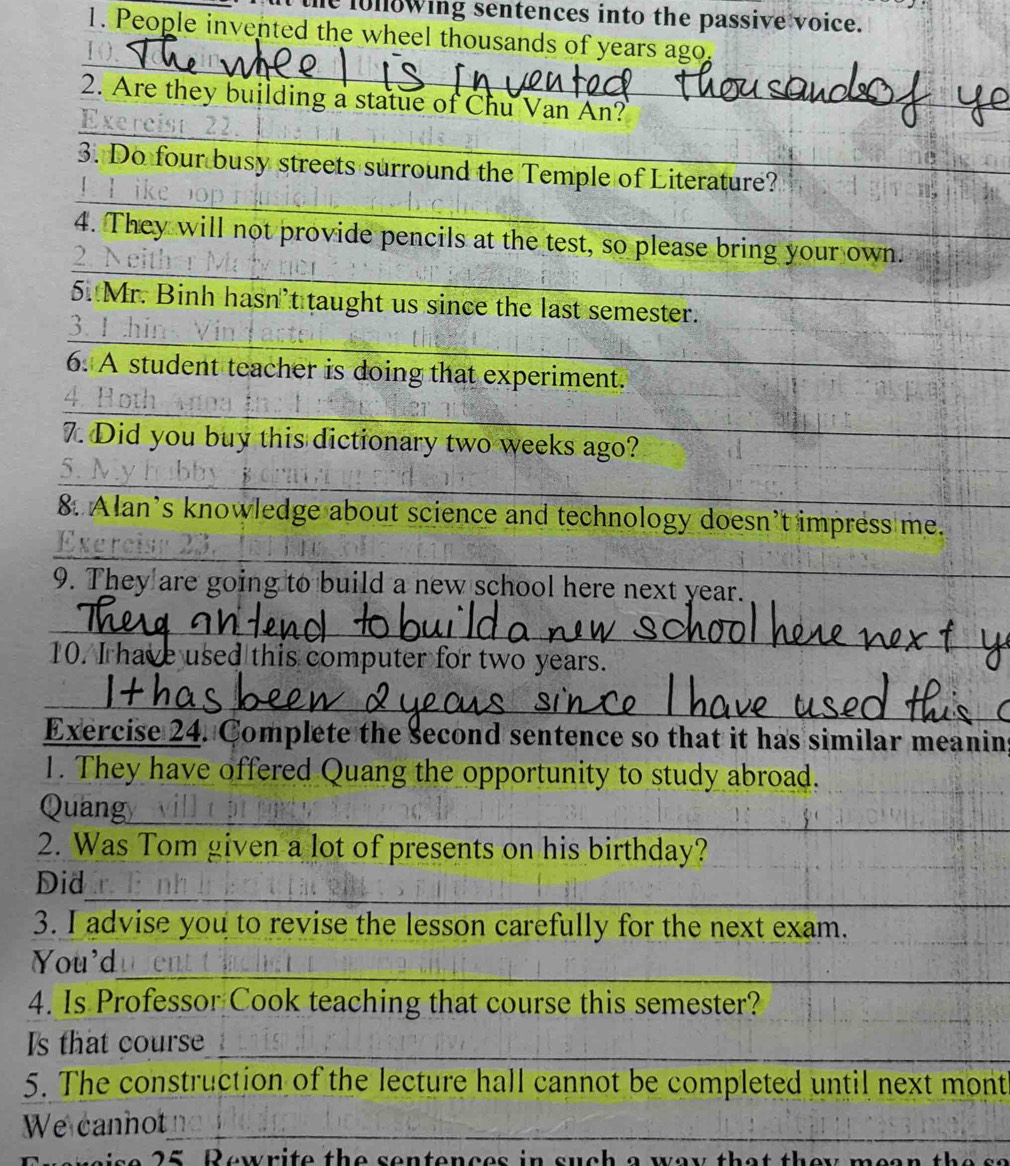 the following sentences into the passive voice.
1. People invented the wheel thousands of years ago.
The wheel is invented thousands of ye
2. Are they building a statue of Chu Van An?
3. Do four busy streets surround the Temple of Literature?
4. They will not provide pencils at the test, so please bring your own.
5. Mr. Binh hasn't taught us since the last semester.
6. A student teacher is doing that experiment.
7. Did you buy this dictionary two weeks ago?
8. Alan's knowledge about science and technology doesn't impress me.
9. They are going to build a new school here next year.
intend to build a new school here next y
10. I have used this computer for two years.
It has been 2 years since I have used this c
Exercise 24. Complete the second sentence so that it has similar meaning
1. They have offered Quang the opportunity to study abroad.
Quang
2. Was Tom given a lot of presents on his birthday?
Did
3. I advise you to revise the lesson carefully for the next exam.
You'd
4. Is Professor Cook teaching that course this semester?
Is that course
5. The construction of the lecture hall cannot be completed until next mont
We cannot
25. Rewrite the sentences in such a way that they mean the sa